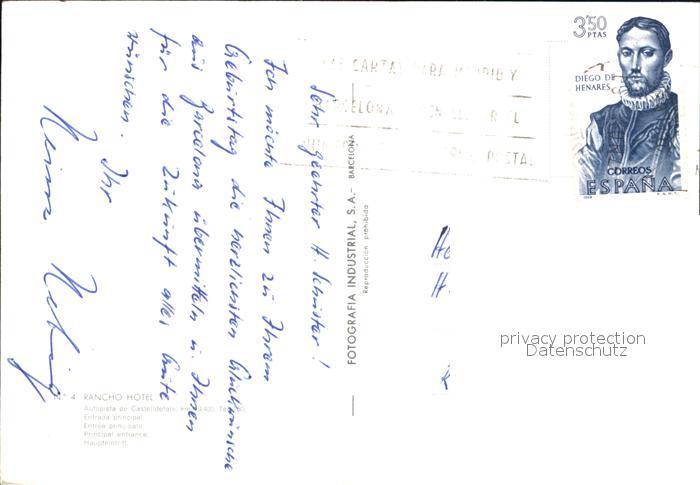 Sehr geehrter H. Schuster!
Ich möchte Ihnen zu Ihrem
Geburtstag die herzlichsten Glückwünsche
aus Barcelona übermitteln u. Ihnen
für die Zukunft alles Gute
wünschen.
Ihr
Nº 4 RANCHO HOTEL
Autopista de Castelldefels,
Entrada principal.
Entrée principale.
Principal entrance.
Haupteintritt.
FOTOGRAFIA INDUSTRIAL, S.A.- BARCELONA
Reproducción prohibida
CARTAS PARA MADRID Y
BARCELONA
POSTAL
3'50
PTAS
DIEGO DE
HENARES
CORREOS
ESPAÑA
H.
privacy protection
Datenschutz